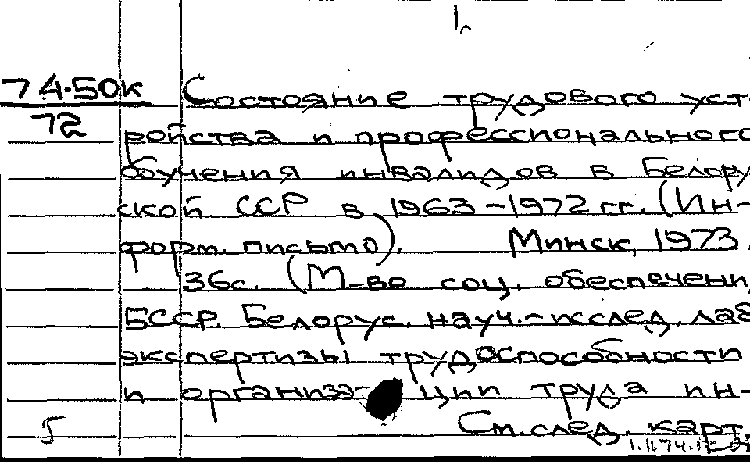 1.
74-50к Состояние трудового уст-
72 ройства и профессионального
обучения инвалидов в Белорус
ской ССР в 1963-1972 гг. (Ин-
форм. письмо). Минск, 1973.
36с. (М-во соц. обеспечени
БССР. Белорус. науч.-исслед. лаб
экспертизы трудоспособности
и организа- ции труда ин-
5 См. след. карт.